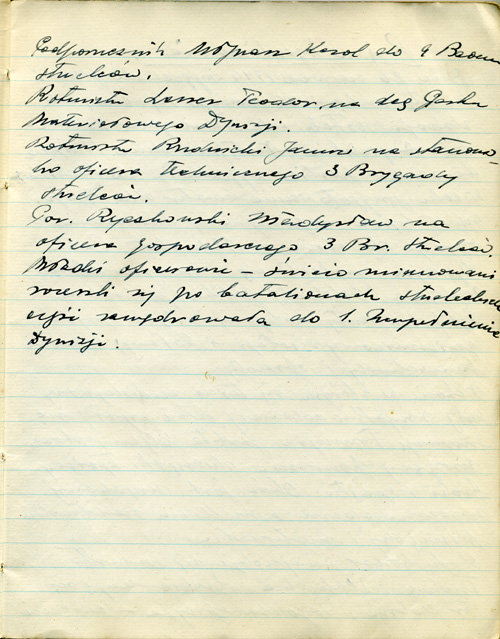 Podporucznik Wójnasz Karol do 9 Baonu
strzelców.
Rotmistrz Lesser Teodor na dcę Parku
Materiałowego Dywizji.
Rotmistrz Rudnicki Janusz na stanowis-
ko oficera technicznego 3 Brygady
strzelców.
Por. Ryczkowski Władysław na
oficera gospodarczego 3 Br. Strzelców.
Młodzi oficerowie – świeżo mianowani
rozeszli się po batalionach strzeleckich
część zawędrowała do 1.
Dywizji.